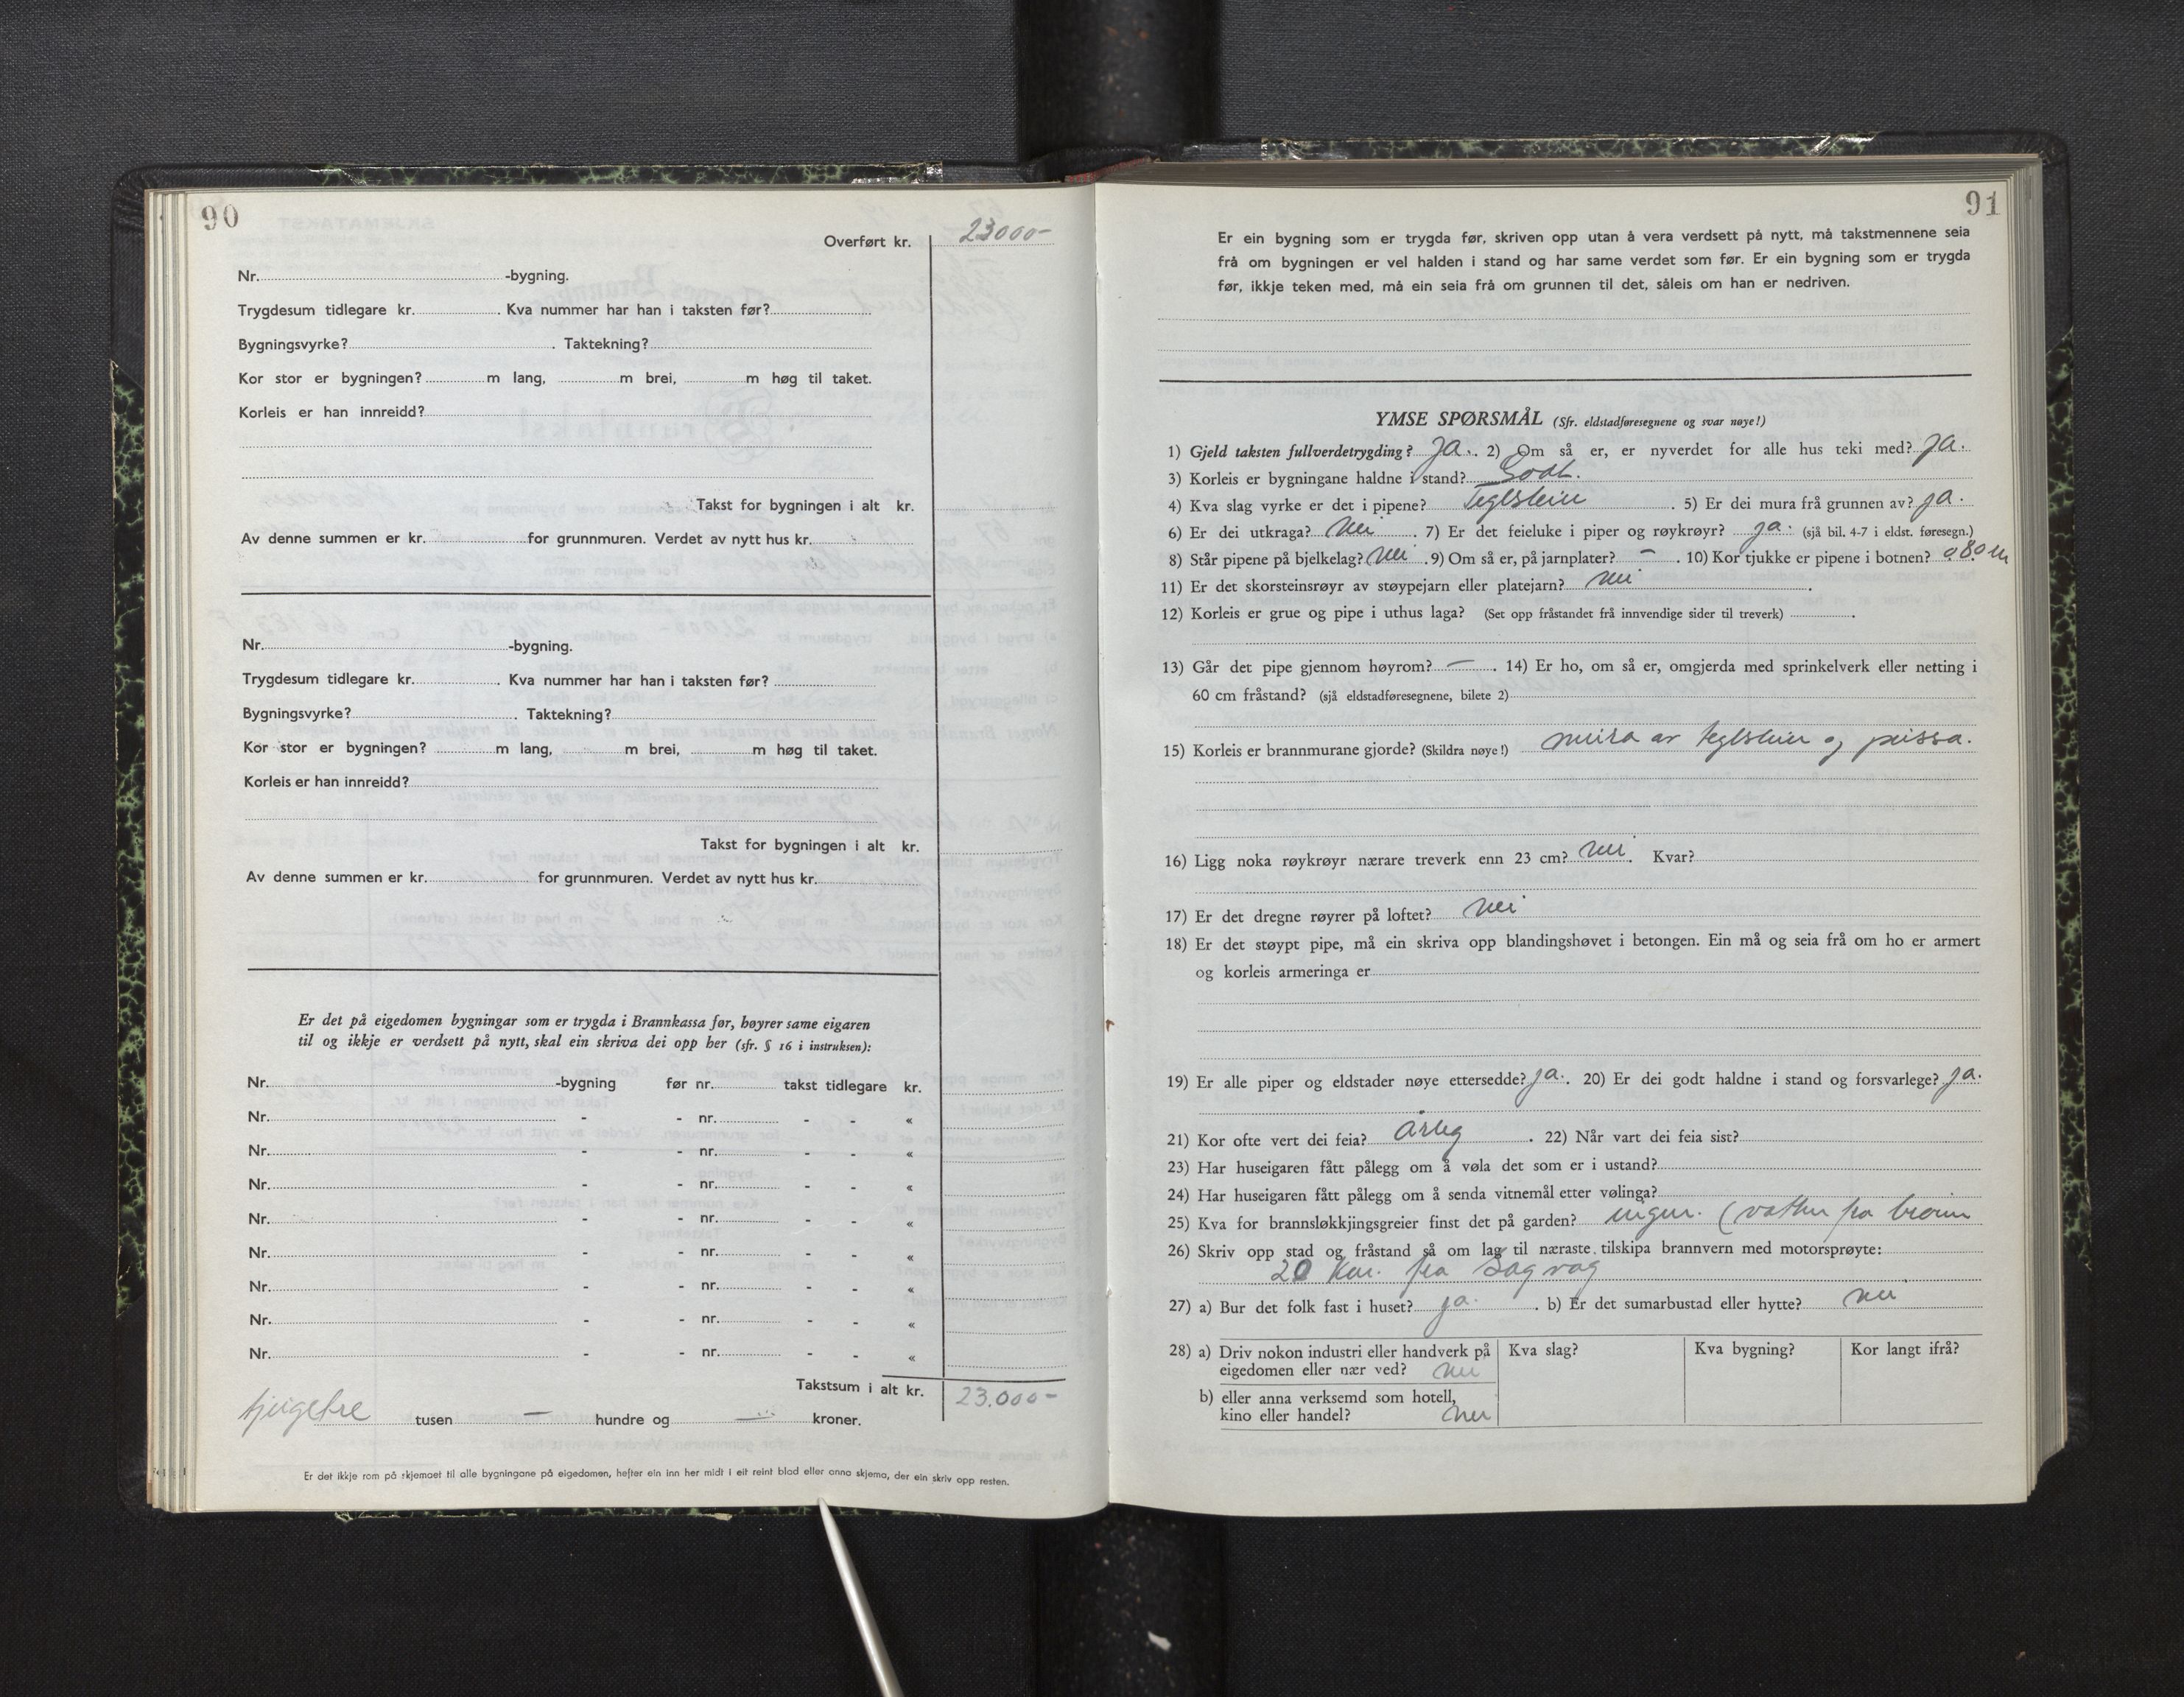 90
Overført kr. 23000-
Nr. -bygning.
Trygdesum tidlegare kr. . Kva nummer har han i taksten før?
Bygningsvyrke? . Taktekning?
Kor stor er bygningen? m lang, m brei, m høg til taket.
Korleis er han innreidd?
Takst for bygningen i alt kr.
Av denne summen er kr. for grunnmuren. Verdet av nytt hus kr.
Nr. -bygning.
Trygdesum tidlegare kr. . Kva nummer har han i taksten før?
Bygningsvyrke? . Taktekning?
Kor stor er bygningen? m lang, m brei, m høg til taket.
Korleis er han innreidd?
Takst for bygningen i alt kr.
Av denne summen er kr. for grunnmuren. Verdet av nytt hus kr.
Er det på eigedomen bygningar som er trygda i Brannkassa før, høyrer same eigaren
til og ikkje er verdsett på nytt, skal ein skriva dei opp her (sfr. § 16 i instruksen):
Nr. -bygning før nr. takst tidlegare kr.
Nr. - - nr. - - «
Nr. - - nr. - - «
Nr. - - nr. - - «
Nr. - - nr. - - «
Nr. - - nr. - - «
Nr. - - nr. - - «
Nr. - - nr. - - «
Nr. - - nr. - - «
Takstsum i alt kr. 23.000-
tjugetre tusen — hundre og — kroner.
Er det ikkje rom på skjemaet til alle bygningane på eigedomen, hefter ein inn her midt i eit reint blad eller anna skjema, der ein skriv opp resten.
91
Er ein bygning som er trygda før, skriven opp utan å vera verdsett på nytt, må takstmennene seia
frå om bygningen er vel halden i stand og har same verdet som før. Er ein bygning som er trygda
før, ikkje teken med, må ein seia frå om grunnen til det, såleis om han er nedriven.
YMSE SPØRSMÅL (Sfr. eldstadføresegnene og svar nøye!)
1) Gjeld taksten fullverdetrygding? Ja. 2) Om så er, er nyverdet for alle hus teki med? Ja.
3) Korleis er bygningane haldne i stand? Godt.
4) Kva slag vyrke er det i pipene? Teglstein . 5) Er dei mura frå grunnen av? Ja.
6) Er dei utkraga? Nei . 7) Er det feieluke i piper og røykrøyr? Ja. (sjå bil. 4-7 i eldst. føresegn.)
8) Står pipene på bjelkelag? Nei . 9) Om så er, på jarnplater? - . 10) Kor tjukke er pipene i botnen? 0,80 m
11) Er det skorsteinsrøyr av støypejarn eller platejarn? Nei .
12) Korleis er grue og pipe i uthus laga? (Set opp fråstandet frå innvendige sider til treverk) .
13) Går det pipe gjennom høyrom? — . 14) Er ho, om så er, omgjerda med sprinkelverk eller netting i
60 cm fråstand? (sjå eldstadføresegnene, bilete 2)
15) Korleis er brannmurane gjorde? (Skildra nøye!) mura av teglstein og pussa.
16) Ligg noka røykrøyr nærare treverk enn 23 cm? Nei. Kvar?
17) Er det dregne røyrer på loftet? Nei
18) Er det støypt pipe, må ein skriva opp blandingshøvet i betongen. Ein må og seia frå om ho er armert
og korleis armeringa er
19) Er alle piper og eldstader nøye ettersedde? Ja. . 20) Er dei godt haldne i stand og forsvarlege? Ja.
21) Kor ofte vert dei feia? Årleg . 22) Når vart dei feia sist?
23) Har huseigaren fått pålegg om å vøla det som er i ustand?
24) Har huseigaren fått pålegg om å senda vitnemål etter vølinga?
25) Kva for brannsløkkjingsgreier finst det på garden? ingen. (vatten fra brønn
26) Skriv opp stad og fråstand så om lag til næraste tilskipa brannvern med motorsprøyte:
20 km. fra Sagvåg
27) a) Bur det folk fast i huset? ja. . b) Er det sumarbustad eller hytte? Nei
28) a) Driv nokon industri eller handverk på Kva slag? Kva bygning? Kor langt ifrå?
eigedomen eller nær ved? Nei
b) eller anna verksemd som hotell,
kino eller handel? Nei